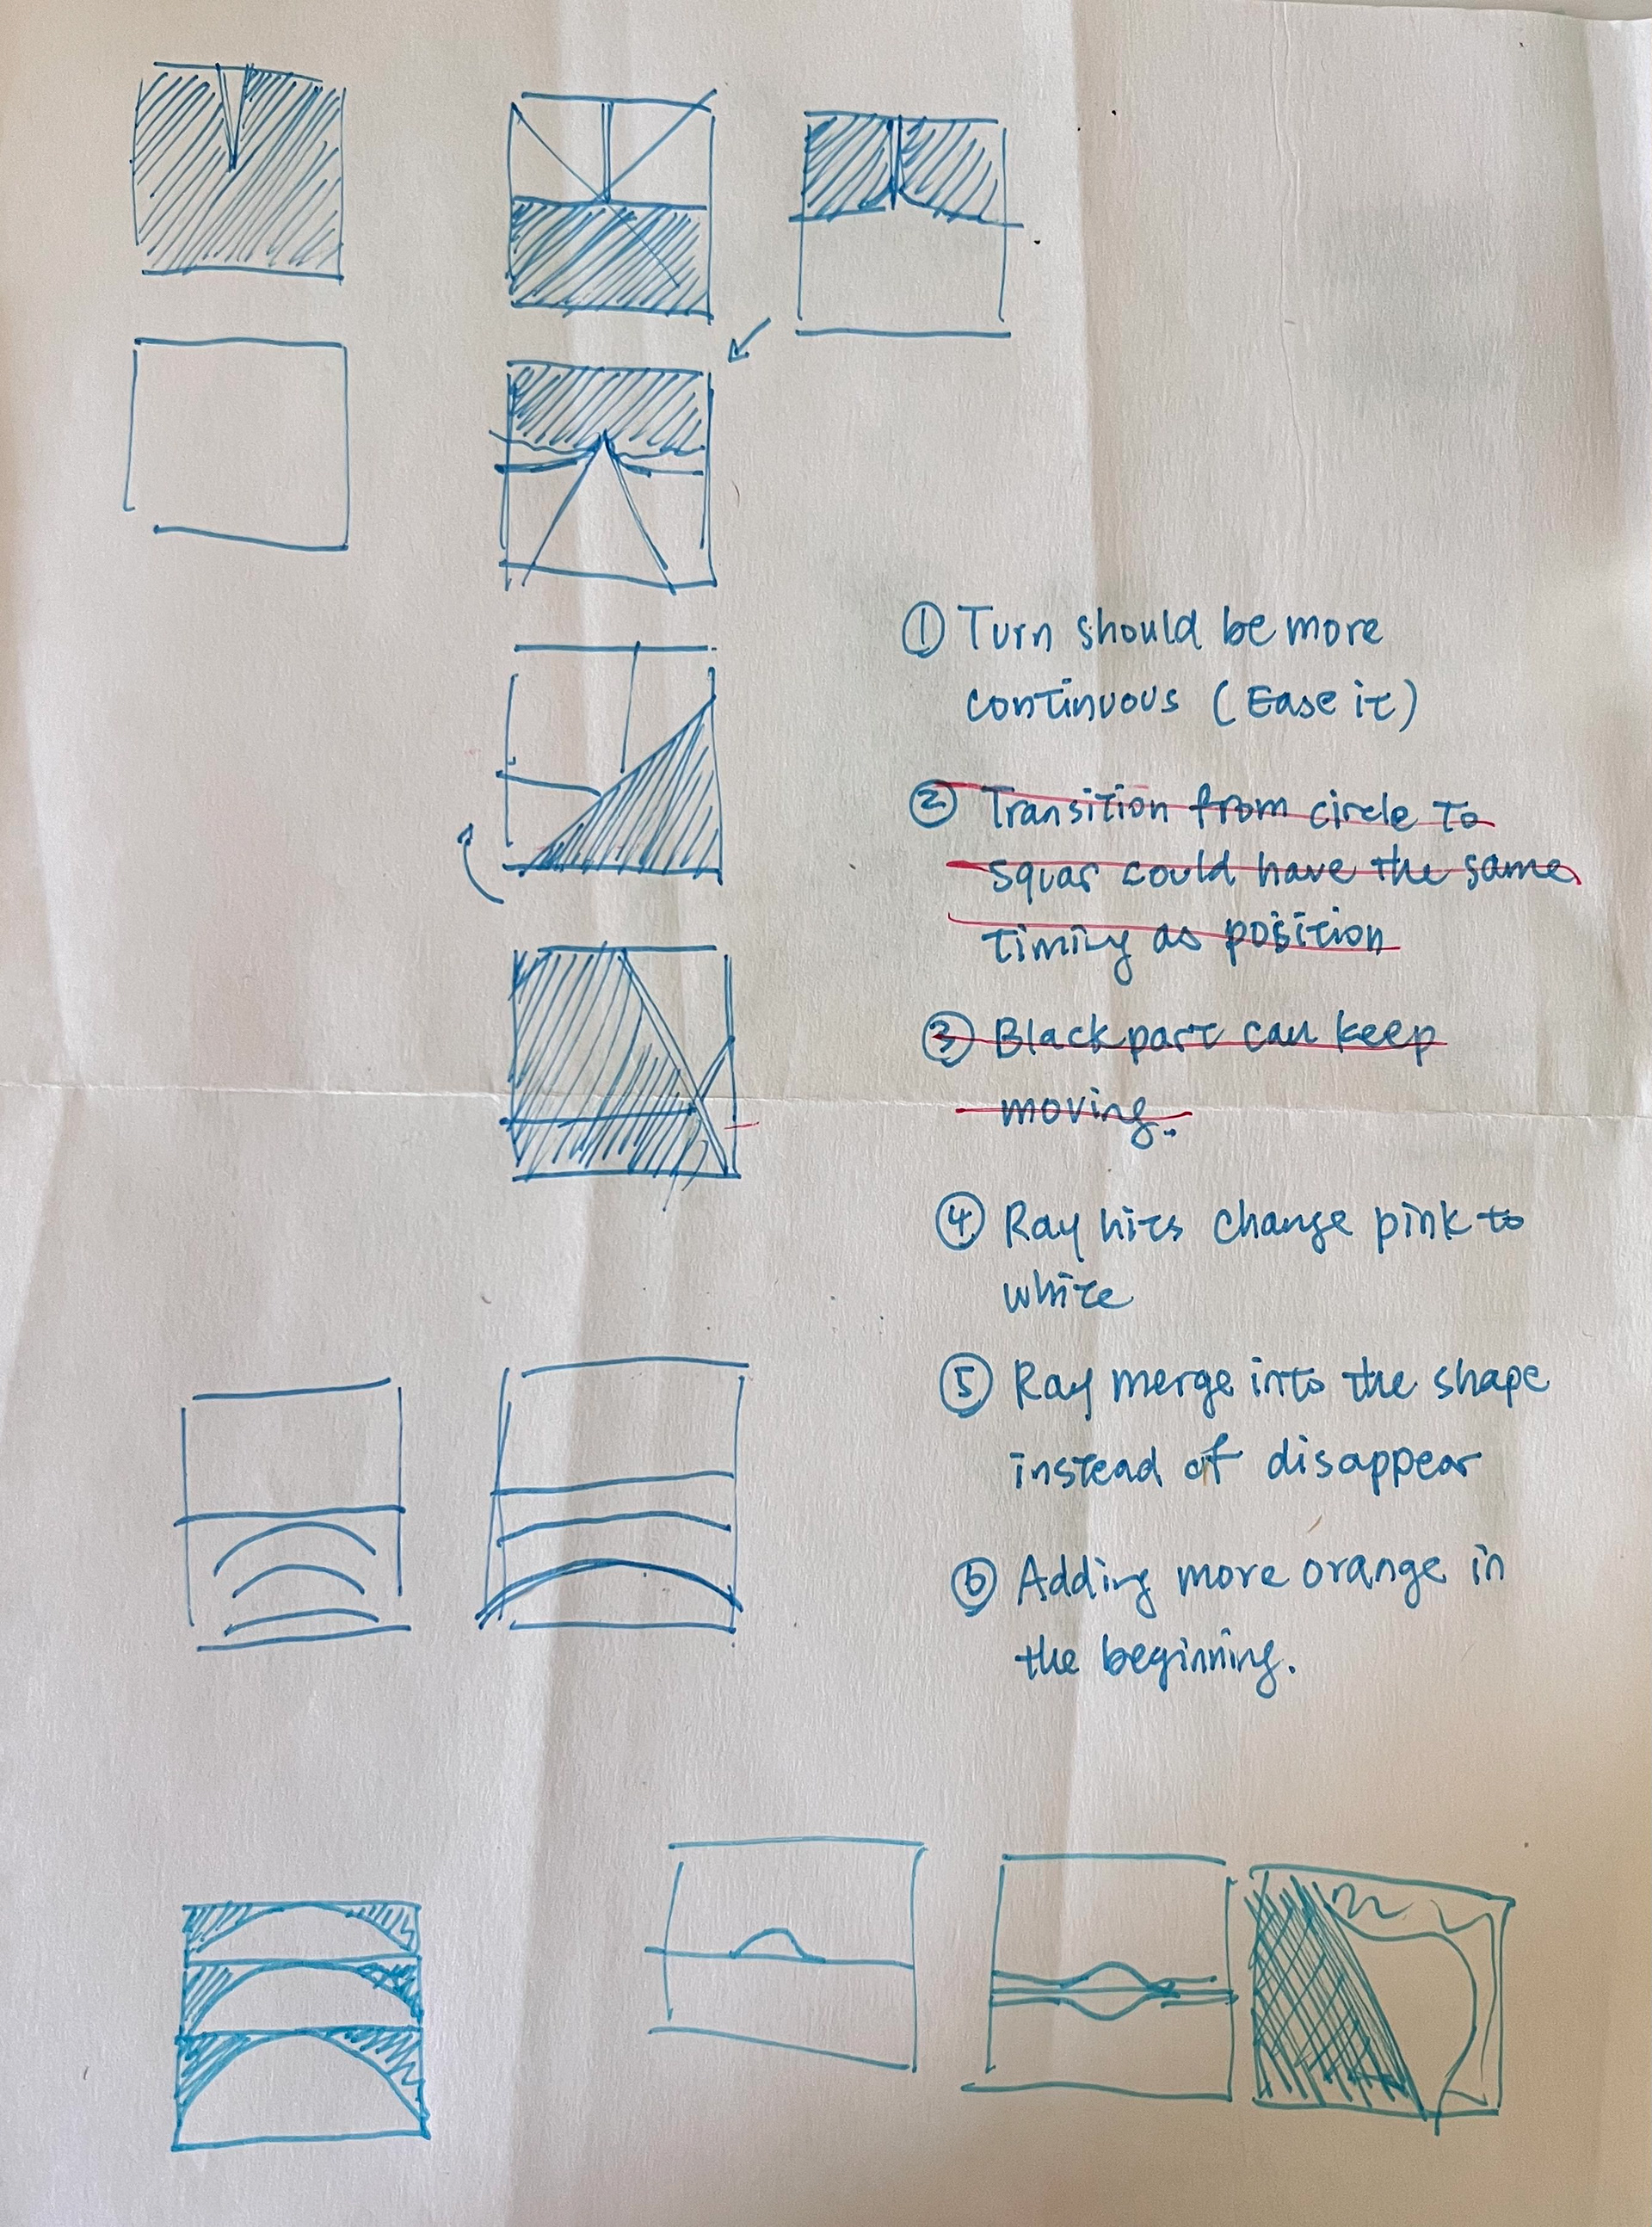 ① Turn should be more
continuous (Ease it)
② Transition from circle to
squar could have the same
timing as position
③ Black part can keep
moving.
④ Ray hits change pink to
white
⑤ Ray merge into the shape
instead of disappear
⑥ Adding more orange in
the beginning.